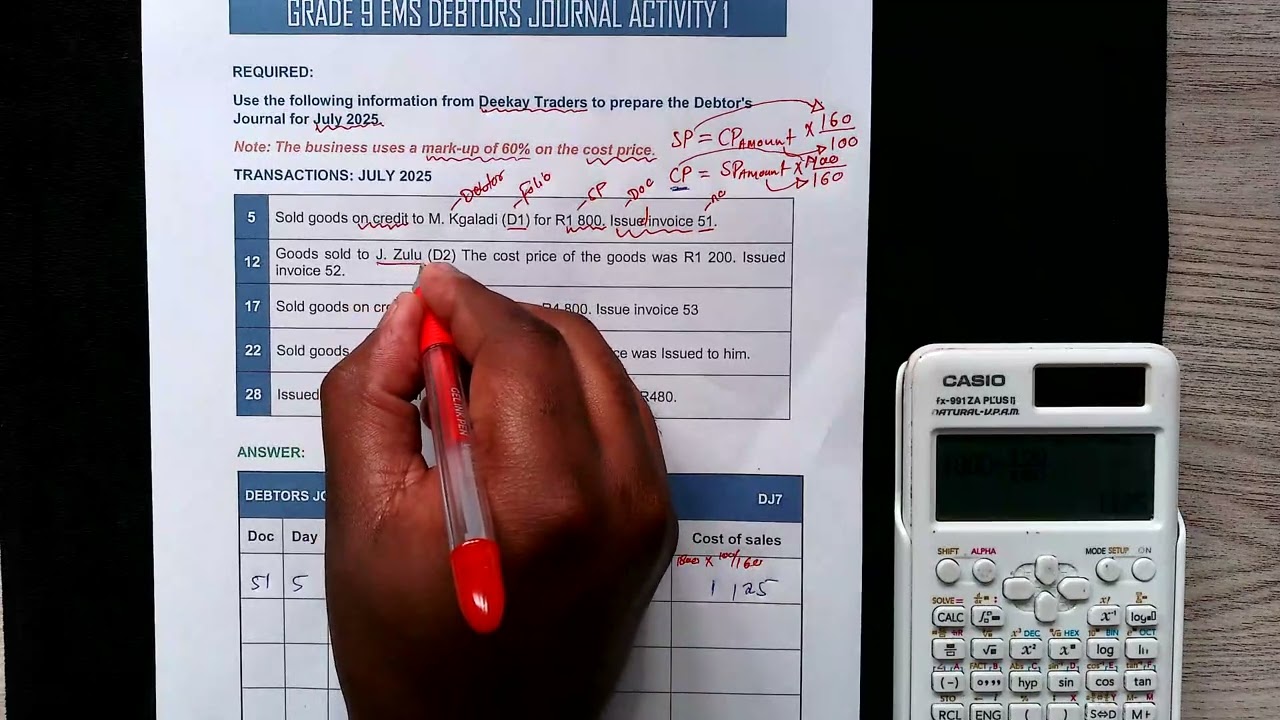 GRADE 9 EMS DEBTORS JOURNAL ACTIVITY 1
REQUIRED:
Use the following information from Deekay Traders to prepare the Debtor's
Journal for July 2025.
Note: The business uses a mark-up of 60% on the cost price.
SP = CP Amount × 160/100
CP = SP Amount × 100/160
TRANSACTIONS: JULY 2025
Debtor Folio SP Doc no
5 Sold goods on credit to M. Kgaladi (D1) for R1 800. Issue invoice 51.
12 Goods sold to J. Zulu (D2) The cost price of the goods was R1 200. Issued
invoice 52.
17 Sold goods on R4 800. Issue invoice 53
22 Sold goods was Issued to him.
28 Issued R480.
ANSWER:
DEBTORS DJ7
Doc Day Cost of sales
1800 × 100/160
51 5 1 125
CASIO
fx-991ZA PLUS II
NATURAL-V.P.A.M.
SHIFT ALPHA MODE SETUP ON
SOLVE =
CALC x⁻¹
x³ DEC HEX BIN OCT
√ x² log
FACT
(-) hyp sin cos tan
STO
RCL ENG ( ) S⇔D M+